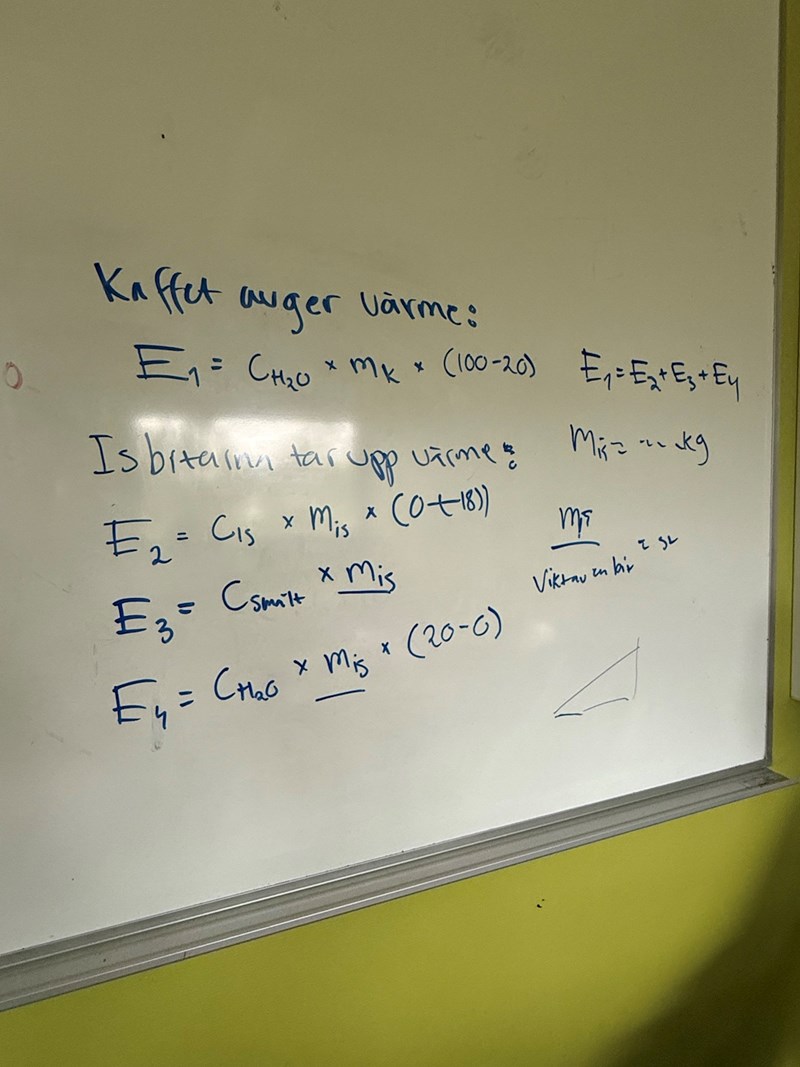 Kaffet avger värme:
E₁ = C_H₂O × m_K × (100-20)
E₁ = E₂ + E₃ + E₄
Isbitarna tar upp värme:
m_is = ... kg
E₂ = C_is × m_is × (0+18))
E₃ = C_smält × m_is
E₄ = C_H₂O × m_is × (20-0)
Vikt av en bit = st